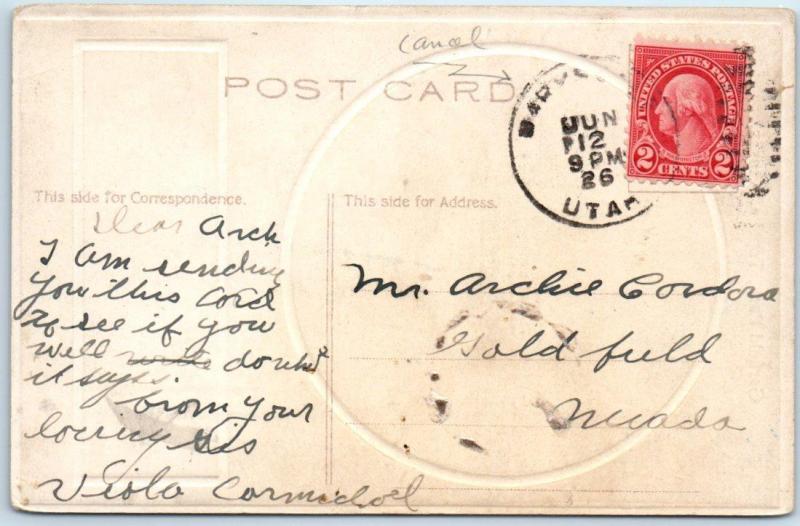 canal
POST CARD
JUN
12
9 PM
26
UTAH
UNITED STATES POSTAGE
WASHINGTON
2 CENTS 2
This side for Correspondence.
This side for Address.
Dear Arch
I am sending
you this Card
to see if you
well do what
it says.
from your
loving sis
Viola Carmichael
Mr. Archie Cordova
Gold field
Nevada